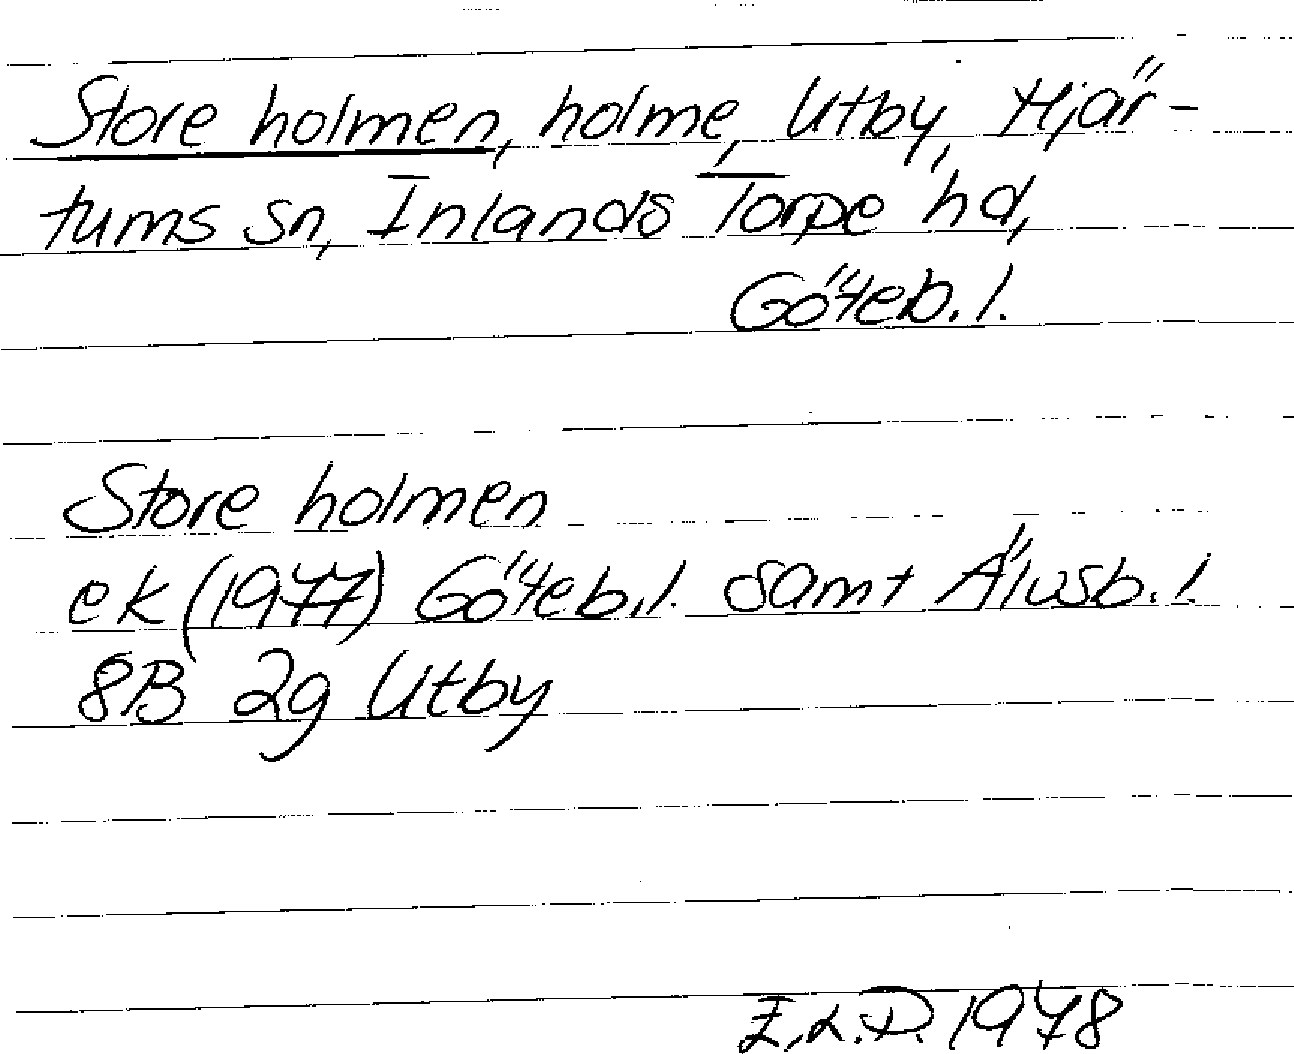 Store holmen, holme, Utby, Hjär-
tums sn, Inlands Torpe hd,
Göteb. l.
Store holmen
ek (1977) Göteb. l. samt Älvsb. l.
8B 2g Utby
E.L.D. 1978